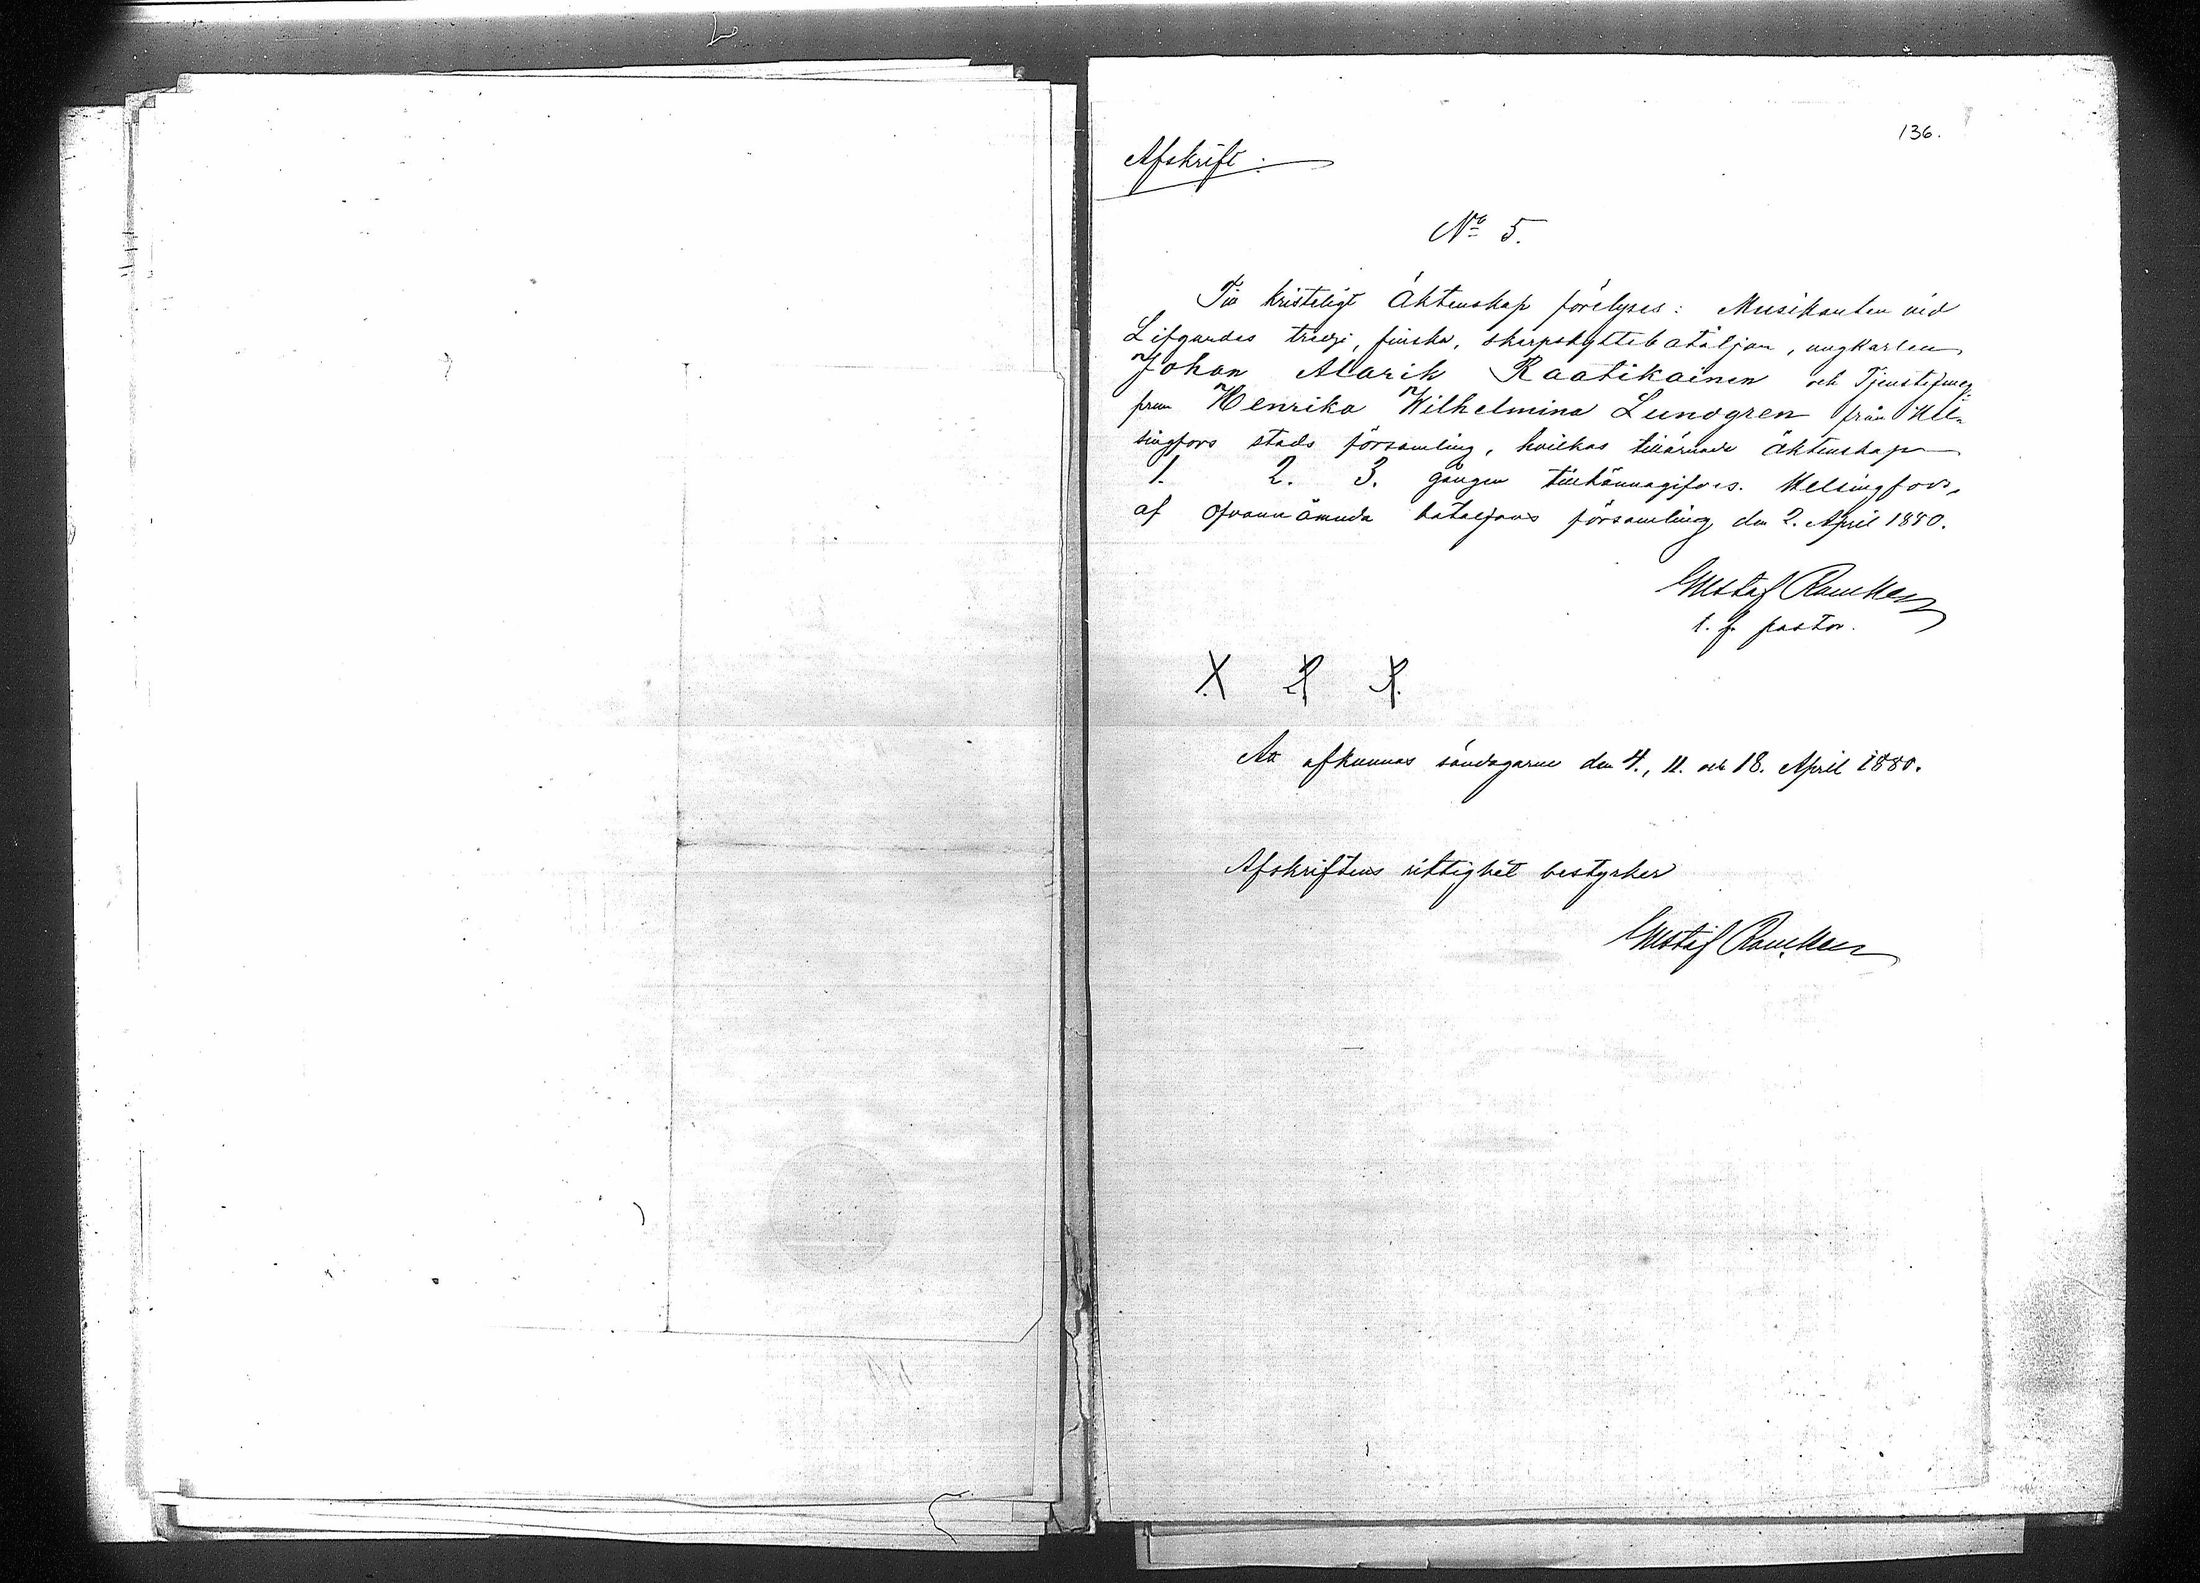 136.
Afskrift:
No 5.
Till kristeligt Äktenskap förelyses: Musikanten vid
Lifgardes tredje, finska, skarpskyttebataljon, ungkarlen
Johan Alarik Raatikainen och Tjenstejung-
frun Henrika Wilhelmina Lundgren från Hel-
singfors stads församling, hvilkas tillärnade äktenskap
1. 2. 3. gången tillkännagifves. Helsingfors,
af ofvannämnda bataljons församling den 2. April 1880.
Gustaf Rancken
t. f. pastor.
1. 2. 3.
Att afkunnas söndagarne den 4., 11. och 18. April 1880.
Afskriftens riktighet bestyrker
Gustaf Rancken